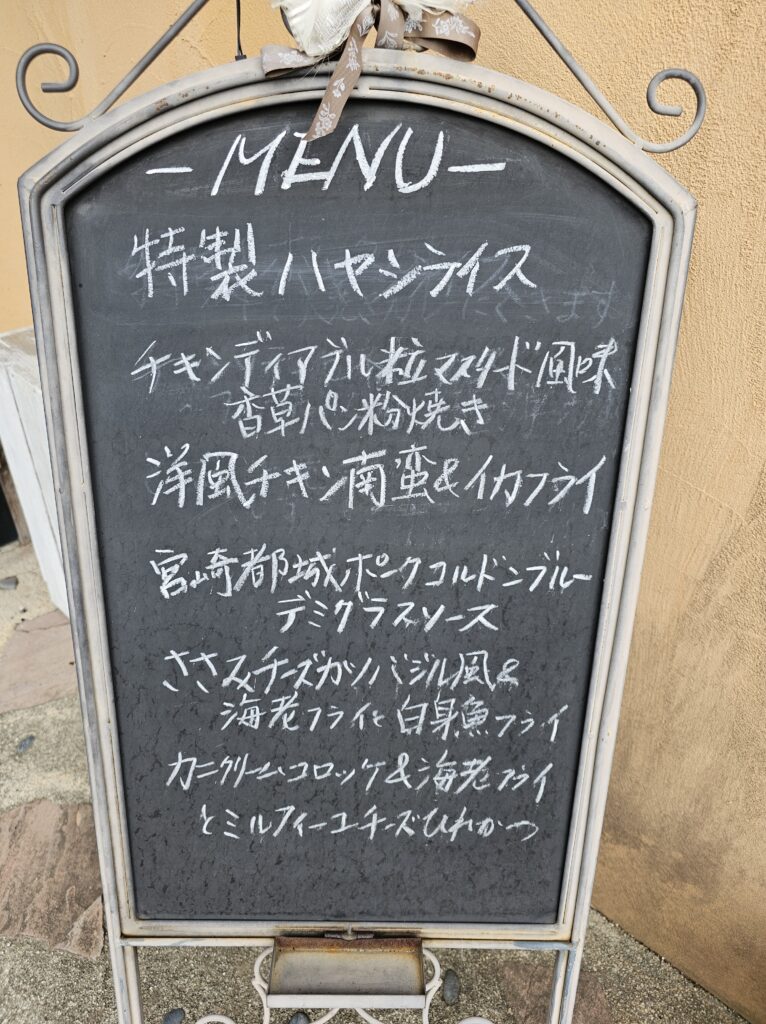 -MENU-
特製ハヤシライス
チキンディアブル粒マスタード風味
香草パン粉焼き
洋風チキン南蛮&イカフライ
宮崎都城ポークコルドンブルー
デミグラスソース
ささみチーズカツバジル風&
海老フライと白身魚フライ
カニクリームコロッケ&海老フライ
とミルフィーユチーズひれかつ